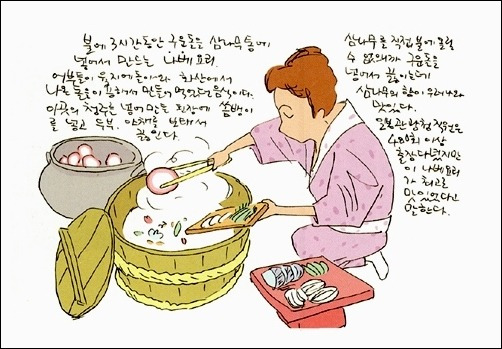 불에 3시간동안 구운돌은 삼나무통에
넣어서 만드는 나베요리.
어부들이 육지에돌아와 화산에서
나온 돌을이용해서 만들어 먹었던음식이다.
이곳의 청주를 넣어 만든 된장에 쏨뱅이
를 넣고 두부, 야채를 보태서
끓인다.
삼나무를 직접불에 올릴
수 없으니까 구운돌을
넣어서 끓이는데
삼나무의 향이 우러나와
맛있다.
일본관광청 직원은
480회 이상
출장다녔지만
이 나베요리
가 최고로
맛있었다고
한다.